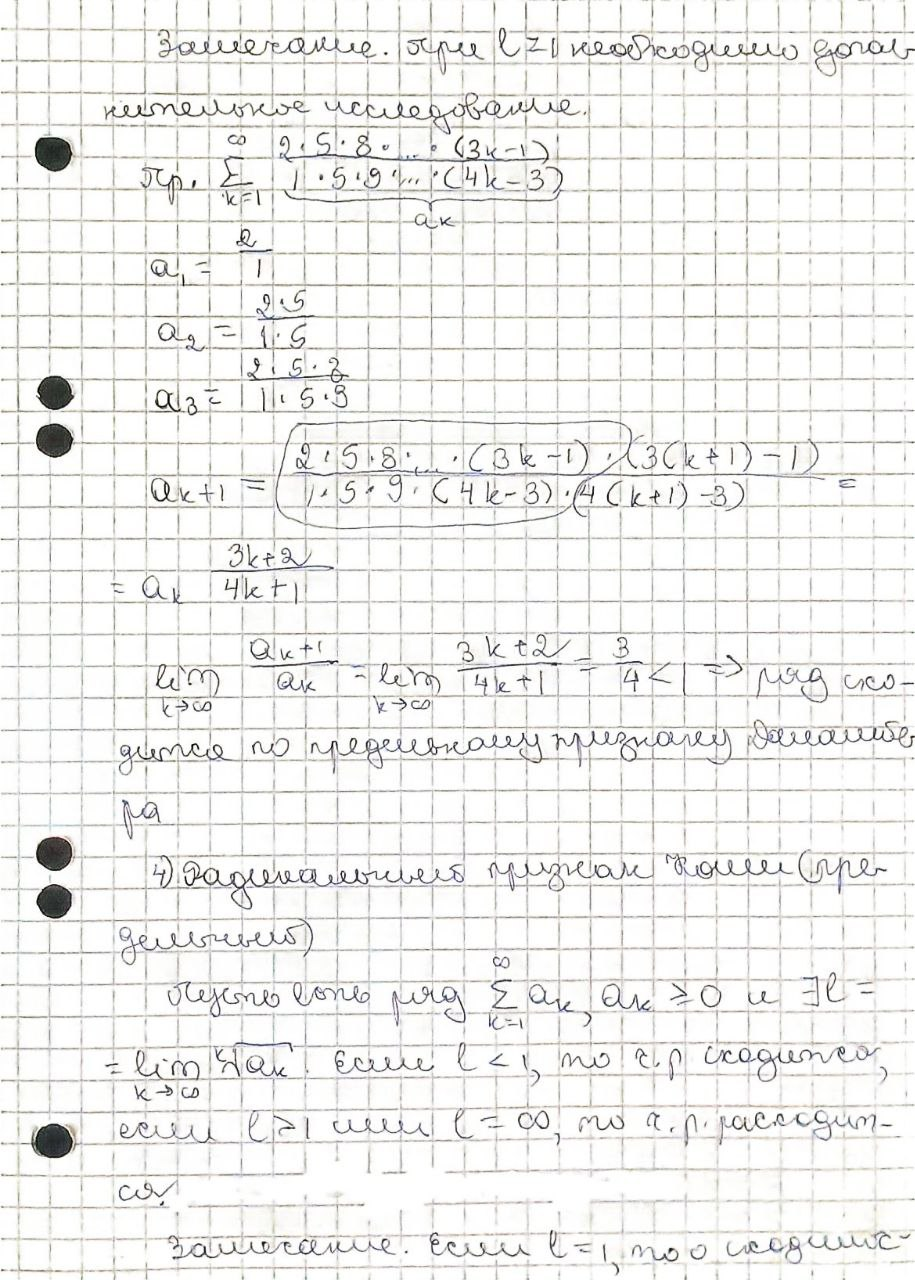 Замечание. При l=1 необходимо допол-
нительное исследование.
Пр. ∑_{k=1}^{∞} (2·5·8·...·(3k-1))/(1·5·9·...·(4k-3))
a_k
a_1 = 2/1
a_2 = (2·5)/(1·5)
a_3 = (2·5·8)/(1·5·9)
a_{k+1} = (2·5·8·...·(3k-1)·(3(k+1)-1))/(1·5·9·(4k-3)·(4(k+1)-3)) =
= a_k (3k+2)/(4k+1)
lim_{k→∞} a_{k+1}/a_k = lim_{k→∞} (3k+2)/(4k+1) = 3/4 < 1 => ряд схо-
дится по предельному признаку Даламбе
ра
4) Радикальный признак Коши (пре-
дельный)
Пусть есть ряд ∑_{k=1}^{∞} a_k, a_k ≥ 0 и ∃ l =
= lim_{k→∞} ᵏ√a_k. Если l < 1, то ч.р сходится,
если l > 1 или l = ∞, то ч.р. расходит-
ся.
Замечание. Если l=1, то о сходимос-